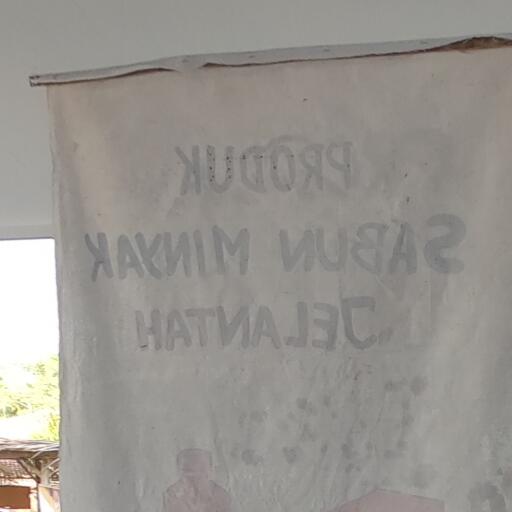 PRODUK
SABUN MINYAK
JELANTAH